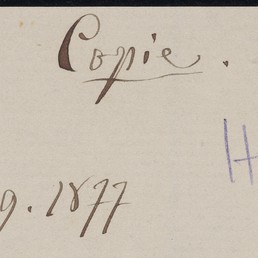 Copie.
H
9. 1877